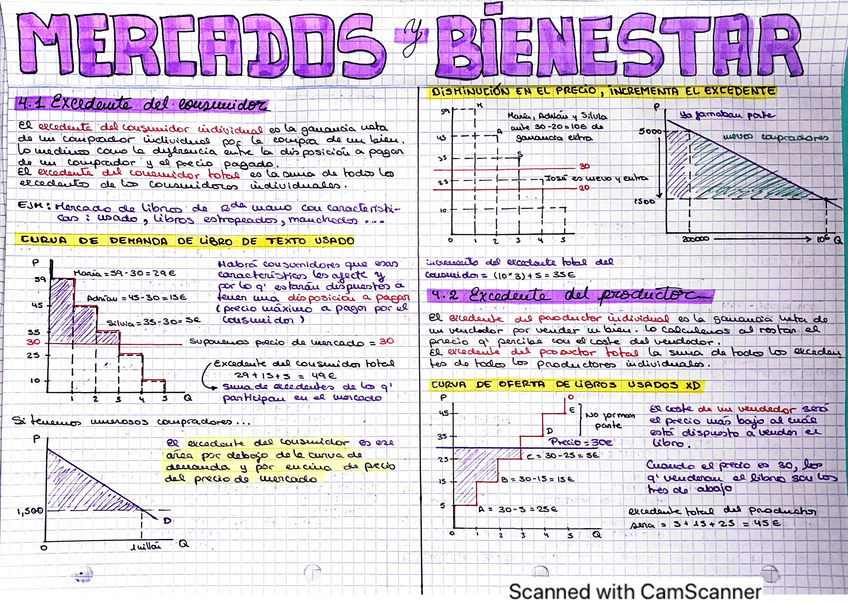 MERCADOS y BIENESTAR
4.1 Excedente del consumidor
El excedente del consumidor individual es la ganancia neta
de un comprador individual por la compra de un bien.
Lo medimos como la diferencia entre la disposición a pagar
de un comprador y el precio pagado.
El excedente del consumidor total es la suma de todos los
excedentes de los consumidores individuales.
EJM: Mercado de libros de 2da mano con característi-
cas: usado, libros estropeados, manchados ...
CURVA DE DEMANDA DE LIBRO DE TEXTO USADO
P
59
45
35
30
25
10
0
1 2 3 4 5 Q
María = 59-30 = 29€
Adrián = 45-30 = 15€
Silvia = 35-30 = 5€
Suponemos precio de mercado = 30
Habrá consumidores que esas
características les afecte y
por lo q' estarán dispuestos a
tener una disposición a pagar
(precio máximo a pagar por el
consumidor)
Excedente del consumidor total
29+15+5 = 49€
Suma de excedentes de los q'
participan en el mercado
Si tenemos numerosos compradores...
P
1,500
0
1 millón
D
Q
El excedente del consumidor es ese
área por debajo de la curva de
demanda y por encima de precio
del precio de mercado
DISMINUCIÓN EN EL PRECIO, INCREMENTA EL EXCEDENTE
59
45
35
25
10
0 1 2 3 4 5 Q
M
A
S
María, Adrián y Silvia
ante 30-20 = 10€ de
ganancia extra
30
José es nuevo y entra
20
P
Ya formaban parte
5000
nuevos compradores
1500
200000
10⁶
Q
Incremento del excedente total del
consumidor = (10*3)+5 = 35€
4.2 Excedente del productor
El excedente del productor individual es la ganancia neta de
un vendedor por vender un bien. Lo calculamos al restar el
precio q' percibe con el coste del vendedor.
El excedente del productor total la suma de todos los exceden
tes de todos los productores individuales.
CURVA DE OFERTA DE LIBROS USADOS XD
P
45
35
25
15
5
0 1 2 3 4 5 Q
O
E
D
No forman
parte
Precio = 30€
C = 30-25 = 5€
B = 30-15 = 15€
A = 30-5 = 25€
El coste de un vendedor será
el precio más bajo al cuál
está dispuesto a vender el
libro.
Cuando el precio es 30, los
q' venderan el libro son los
tres de abajo
excedente total del productor
sera = 5+15+25 = 45€
Scanned with CamScanner